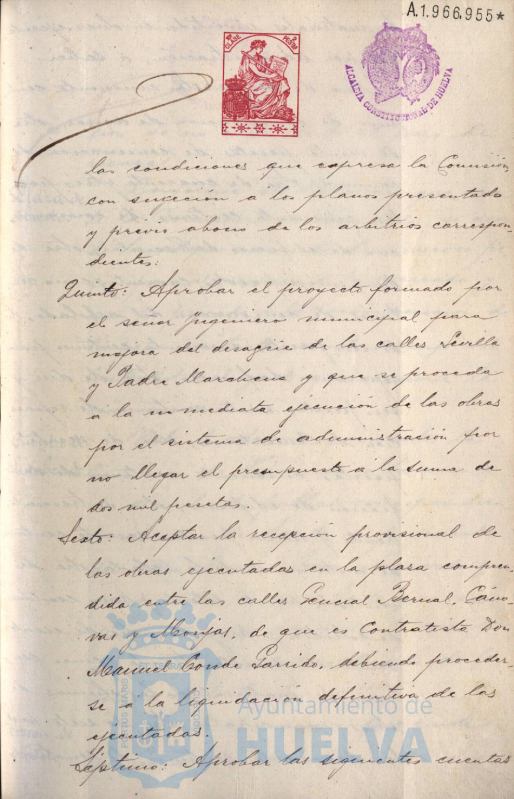 A.1.966.955*
8ª CLASE PESETAS
ALCALDIA CONSTITUCIONAL DE HUELVA
las condiciones que expresa la Comisión,
con sugecion a los planos presentado
y previo abono de los arbitrios correspon-
dientes:
Quinto: Aprobar el proyecto formado por
el señor Ingeniero municipal para
mejora del desagüe de las calles Sevilla
y Padre Marchena y que se proceda
a la inmediata ejecución de las obras
por el sistema de administración por
no llegar el presupuesto a la suma de
dos mil pesetas.
Sexto: Aceptar la recepción provisional de
las obras ejecutadas en la plaza compren-
dida entre las calles General Bernal, Cáno-
vas y Monjas, de que es Contratista Don
Manuel Conde Garrido, debiendo proceder-
se á la liquidación definitiva de las
ejecutadas.
Séptimo: Aprobar las siguientes cuentas
Ayuntamiento de
HUELVA